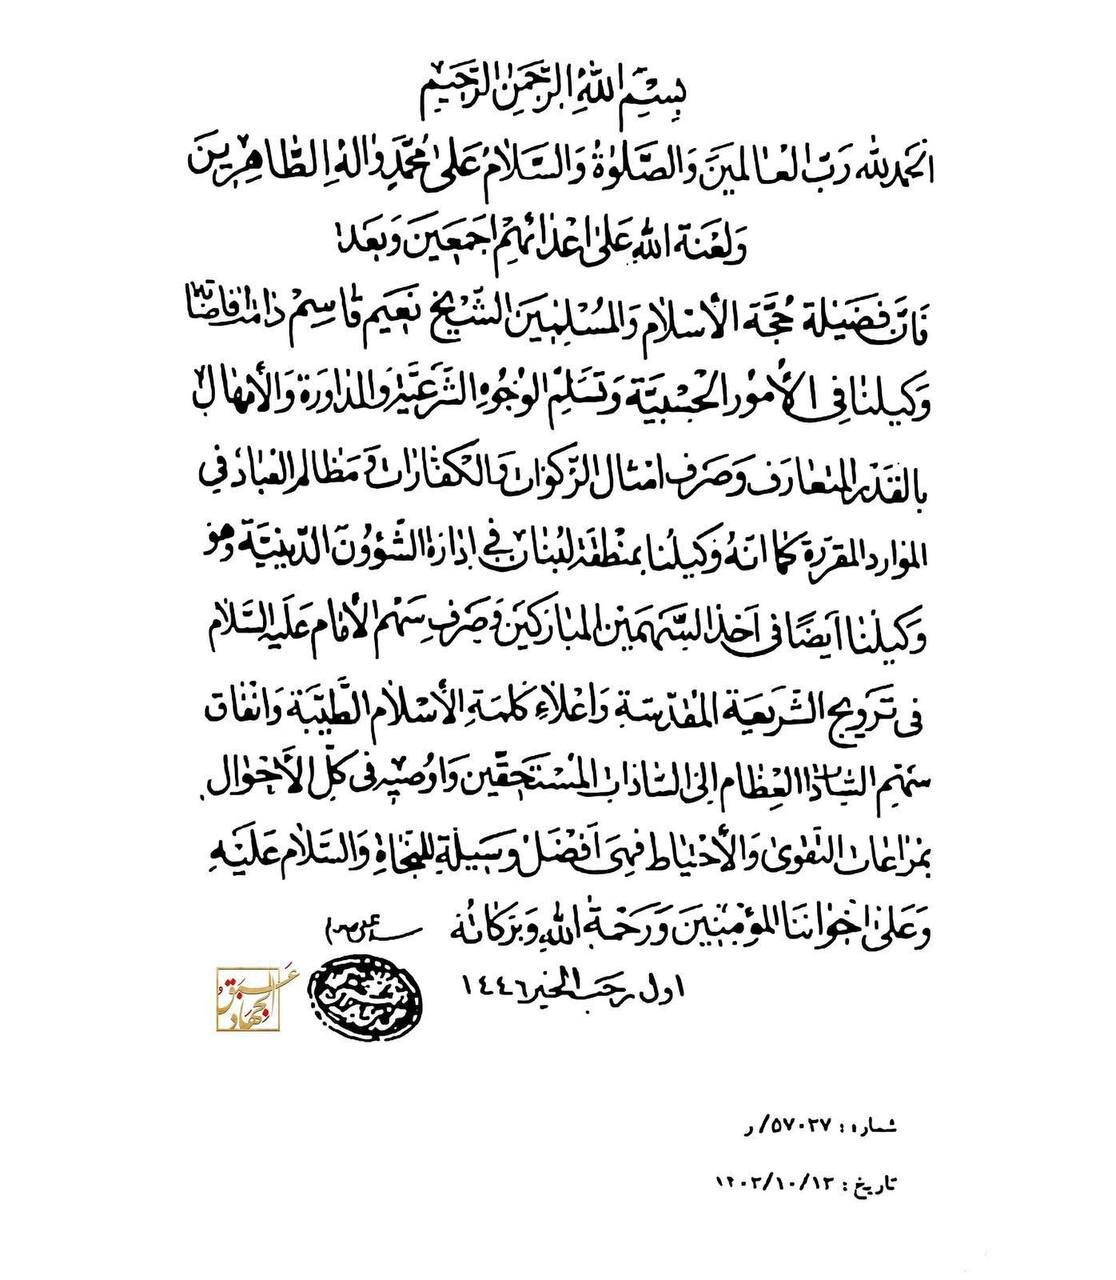 بِسْمِ اللهِ الرَّحْمَنِ الرَّحِيمِ
الحمد لله رَبِّ العالمينَ وَالصَّلوٰةُ وَالسَّلامُ عَلىٰ مُحَمَّدٍ وَالهِ الطَّاهِرينَ
وَلَعْنَةُ اللهِ عَلىٰ اَعْدائِهِمْ اَجْمَعينَ وَبَعْدُ
فَاِنَّ فَضيلَةَ حُجَّةِ الأسْلامِ وَالمُسْلِمينَ الشَّيْخ نَعيم قاسِمْ دامَتْ اِفاضاتُهُ
وَكيلنا فِى الأُمُورِ الحِسْبِيَّةِ وَتَسَلُّمِ الوُجُوهِ الشَّرْعِيَّةِ وَالمداوَرَةِ وَالأمْهالِ
بِالقَدْرِ المتعارَفِ وَصَرْفِ امْثالِ الزَّكَواتِ وَالكَفّاراتِ وَمَظالِمِ العِبادِ في
الموارد المقررة كما انه وَكيلُنا بمنْطَقَةِ لبنان في ادارَةِ الشُّؤُونِ الدّينِيَّةِ وهو
وَكيلُنا اَيضًا فى اَخذِ السَّهمَينِ المبارَكَينِ وَصَرفِ سَهْمِ الأمامِ عَلَيهِ السَّلام
فى تَرَويجِ الشَّريعَةِ المُقَدَّسَةِ وَاِعْلاءِ كَلِمَةِ الأسْلامِ الطَّيِّبَةِ وَانفاقِ
سَهْمِ السّاداتِ العِظامِ اِلى السّاداتِ المُسْتَحِقّينَ وَاُوصيهِ فى كلِّ الأحْوالِ
بمراعاتِ التَّقوىٰ وَالأحْتياطِ فهِىَ اَفْضَلُ وَسيلَةٍ لِلنَّجاةِ وَالسَّلامُ عَلَيْهِ
وَعَلىٰ اِخْوانِنا المؤمِنينَ وَرَحْمَةُ اللهِ وَبَرَكاتُهُ
اول رجب الخير ١٤٤٦
عبق الجهاد
شماره: ٥٧٠٢٧/ر
تاريخ: ١٤٠٣/١٠/١٣